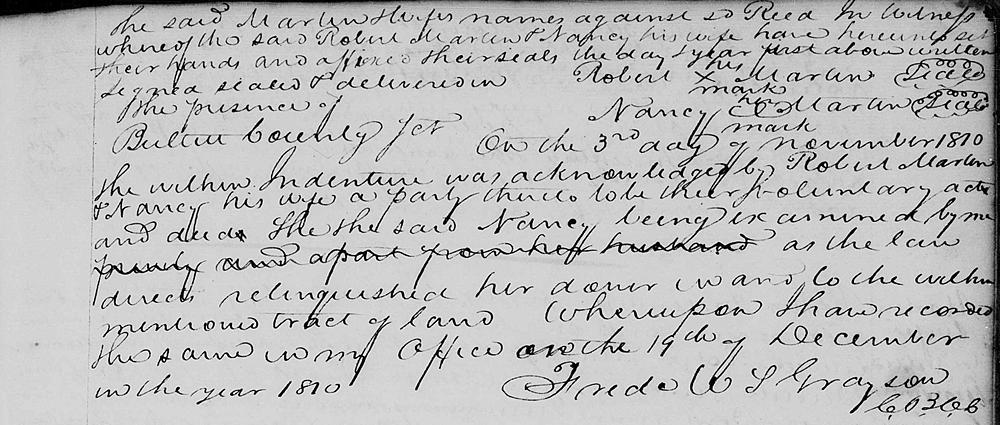 the said Martin & wifes names against sd Reed In Witness
whereof the said Robert Martin & Nancy his wife have hereunto set
their hands and affixed their seals the day & year first above written
Signed sealed & delivered in Robert his X mark Martin Seal
The presence of Nancy her mark Martin Seal
Bullitt County Sct On the 3rd day of November 1810
the within Indenture was acknowledged by Robert Martin
& Nancy his wife a party thereto to be their voluntary acts
and deeds She the said Nancy being examined by me
privily and apart from her husband as the law
directs relinquished her dower in and to the within
mentioned tract of land Whereupon I have recorded
the same in my Office on the 19th of December
in the year 1810 Frede W S Grayson
C.B.C.C.